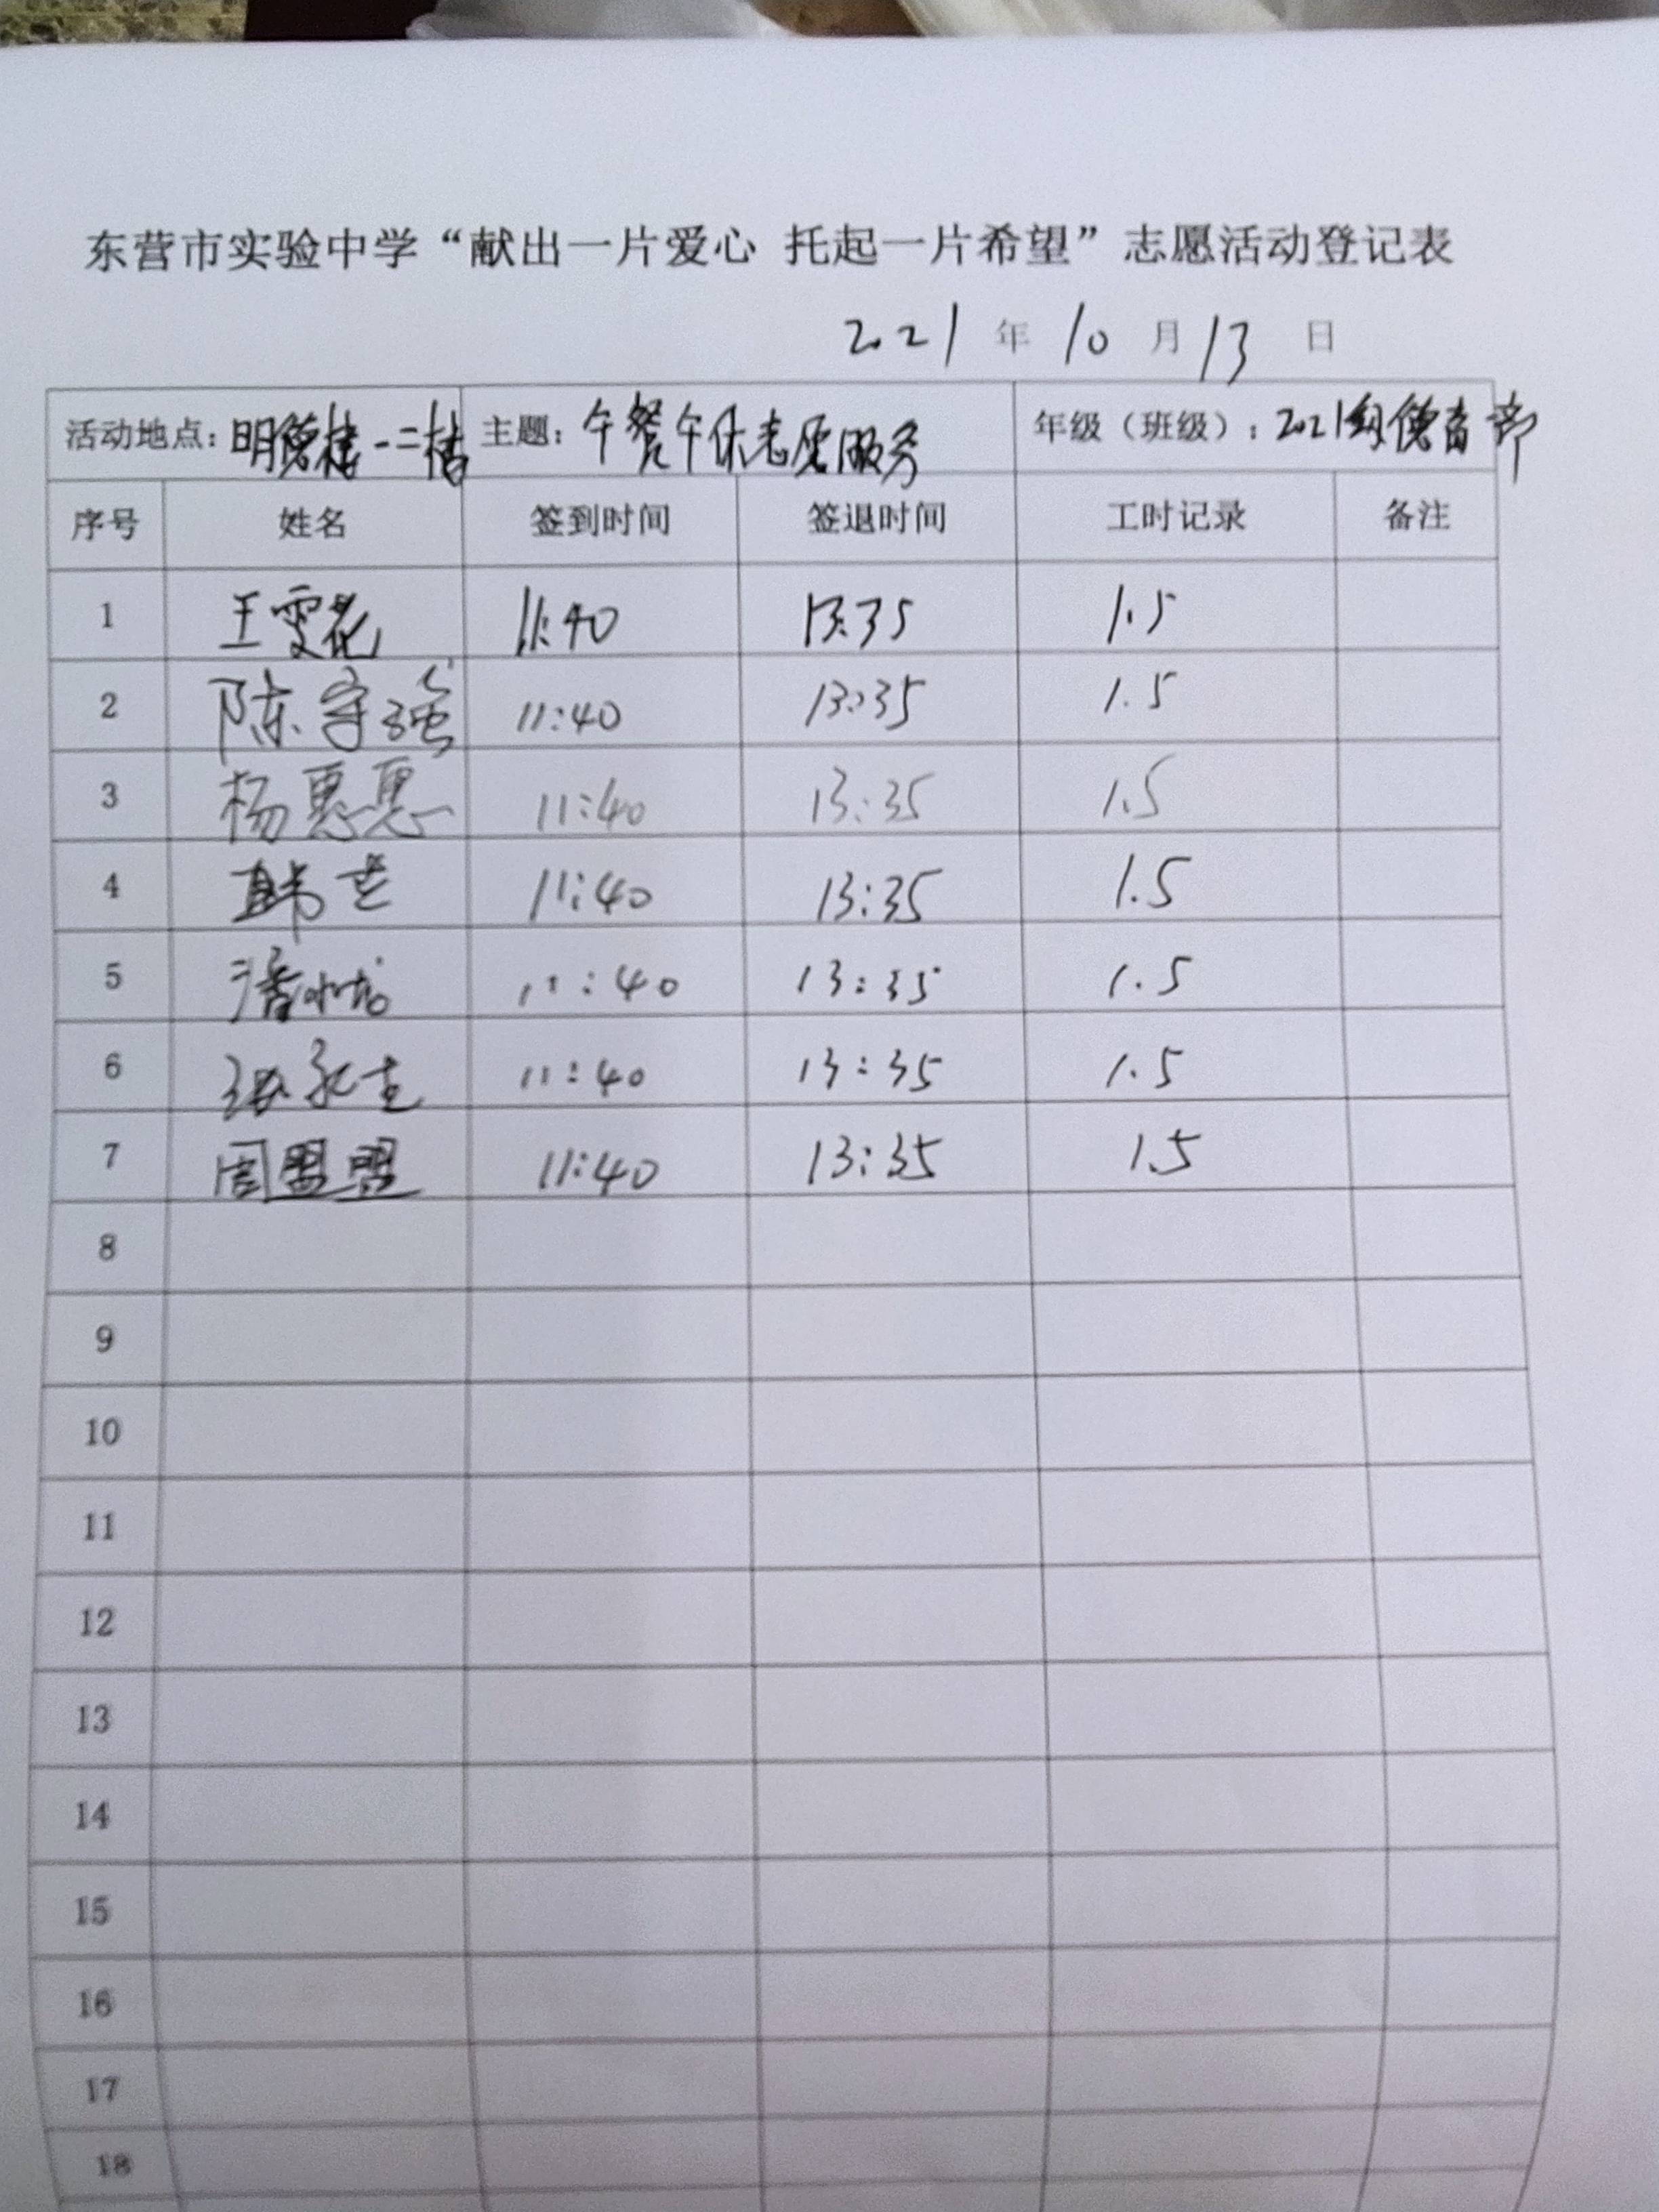 东营市实验中学“献出一片爱心 托起一片希望”志愿活动登记表
2021 年 10 月 13 日
活动地点：明德楼一二楼 主题：午餐午休志愿服务 年级（班级）：2021级德育部
序号 姓名 签到时间 签退时间 工时记录 备注
1 王雯花 11:40 13:35 1.5
2 陈守强 11:40 13:35 1.5
3 杨惠惠 11:40 13:35 1.5
4 韩芸 11:40 13:35 1.5
5 潘 11:40 13:35 1.5
6 张永生 11:40 13:35 1.5
7 周盟盟 11:40 13:35 1.5
8
9
10
11
12
13
14
15
16
17
18